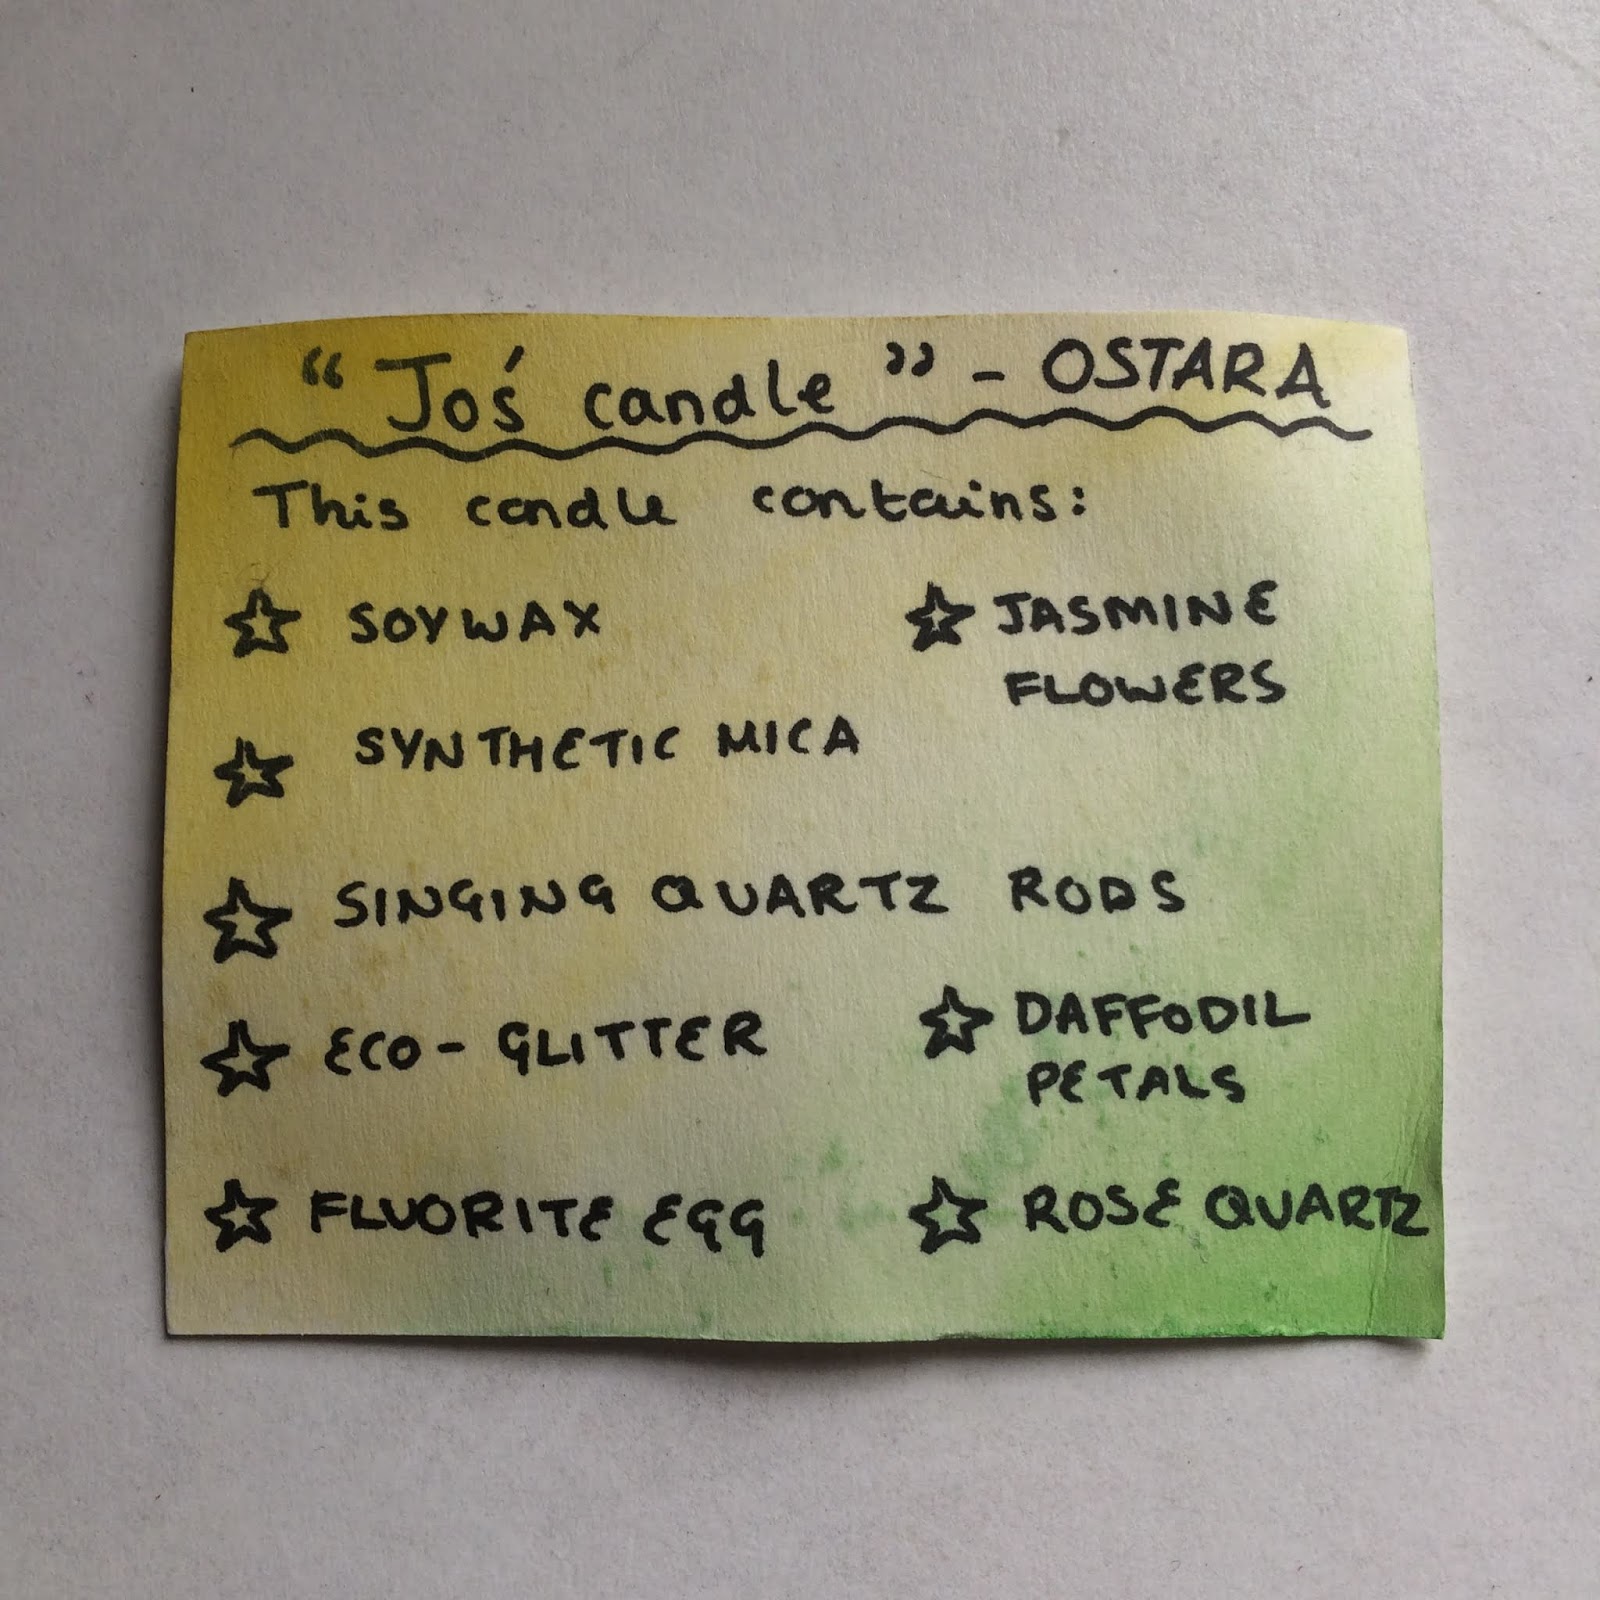 “Jo's candle” - OSTARA
This candle contains:
SOYWAX
JASMINE
FLOWERS
SYNTHETIC MICA
SINGING QUARTZ RODS
ECO-GLITTER
DAFFODIL
PETALS
FLUORITE EGG
ROSE QUARTZ